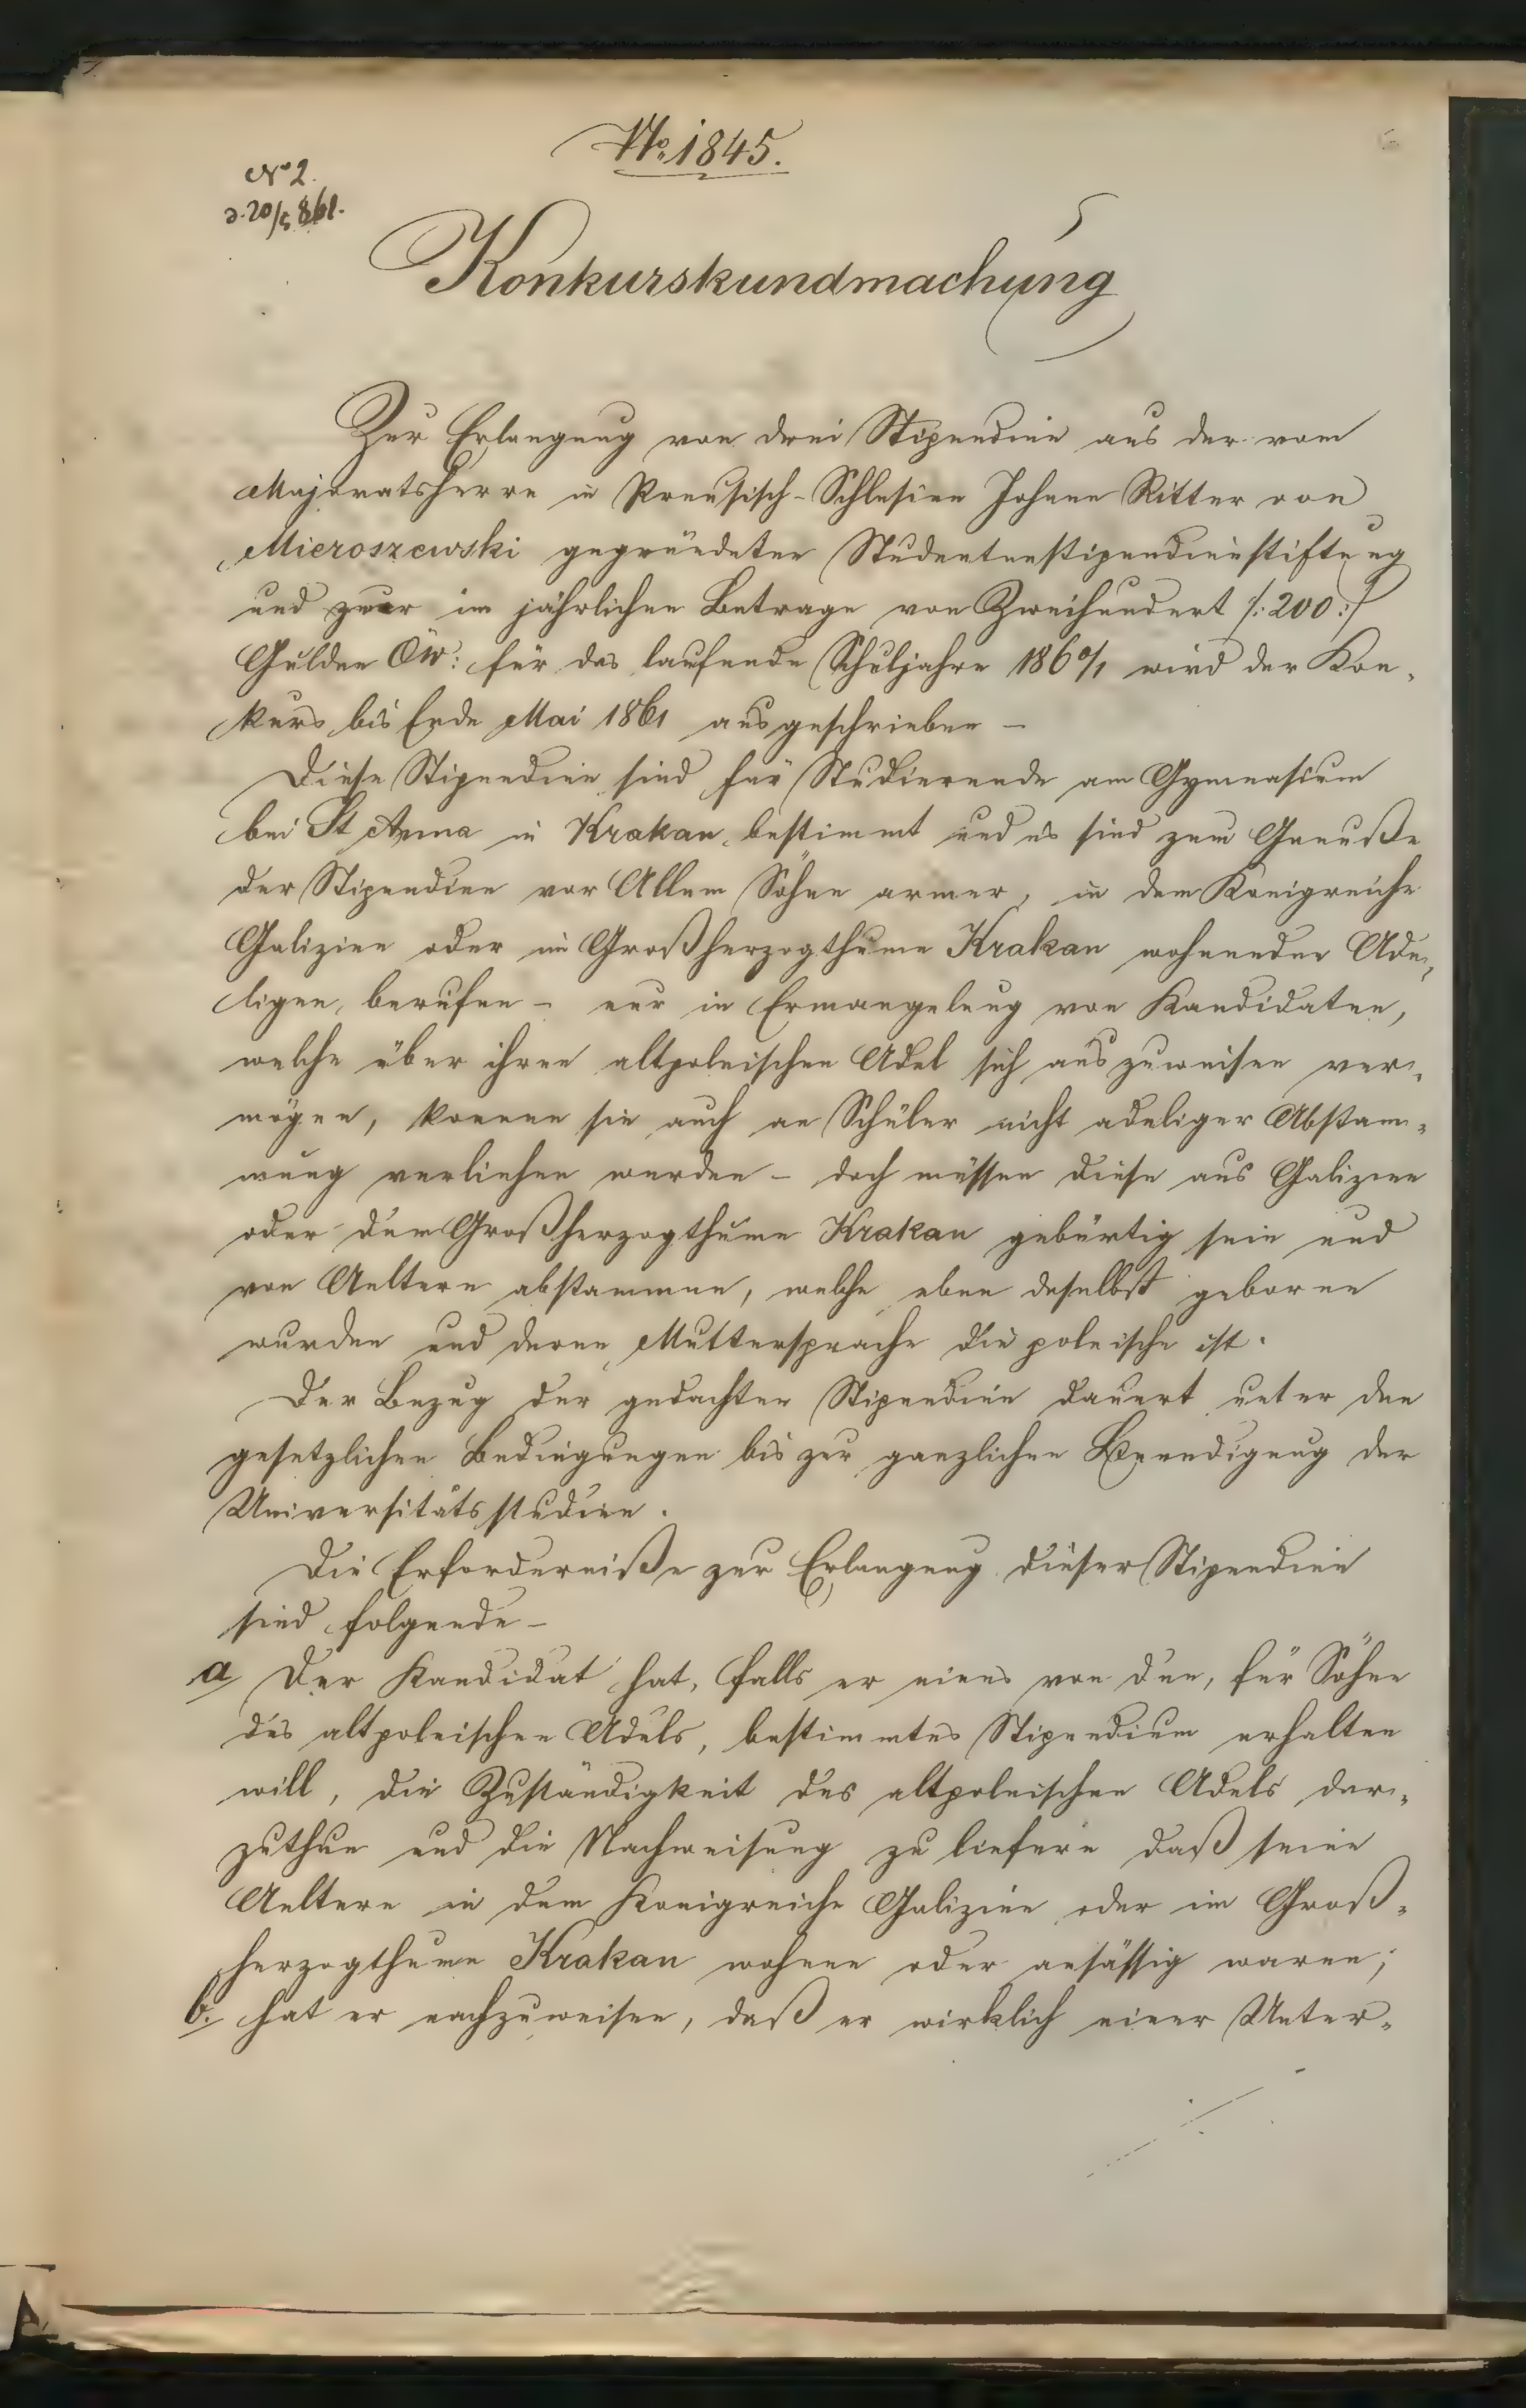 No. 1845.
No 2.
d. 20/5 861.
Konkurskundmachung
Zur Erlangung von drei Stipendien aus der vom
Majoratsherrn in Preusisch-Schlesien Johann Ritter von
Mieroszewski gegründeten Studentenstipendienstiftung
und zwar im jährlichen Betrage von Zweihundert /: 200 :/
Gulden ÖW: für das laufende Schuljahre 1860/1 wird der Kon-
kurs bis Ende Mai 1861 ausgeschrieben –
Diese Stipendien sind für Studierende am Gymnasium
bei St Anna in Krakau bestimmt und es sind zum Genuße
der Stipendien vor Allem Söhne armer, in dem Königreiche
Galizien oder im Großherzogthume Krakau wohnender Ade-
ligen berufen – nur in Ermangelung von Kandidaten,
welche über ihren altpolnischen Adel sich auszuweisen ver-
mögen, können sie auch an Schüler nicht adeliger Abstam-
mung verliehen werden – doch müssen diese aus Galizien
oder dem Großherzogthume Krakau gebürtig sein und
von Aeltern abstammen, welche eben daselbst geboren
wurden und deren Muttersprache die polnische ist.
Der Bezug der gedachten Stipendien dauert unter den
gesetzlichen Bedingungen bis zur gänzlichen Beendigung der
Universitätsstudien.
Die Erforderniße zur Erlangung dieser Stipendien
sind folgende –
a Der Kandidat hat, falls er eines von den, für Söhne
des altpolnischen Adels, bestimmtes Stipendium erhalten
will, die Zuständigkeit des altpolnischen Adels dar-
zuthun und die Nachweisung zu liefern daß seine
Aeltern in dem Königreiche Galizien oder im Groß-
herzogthume Krakau wohnen oder ansässig waren;
b. hat er nachzuweisen, daß er wirklich einer Unter-